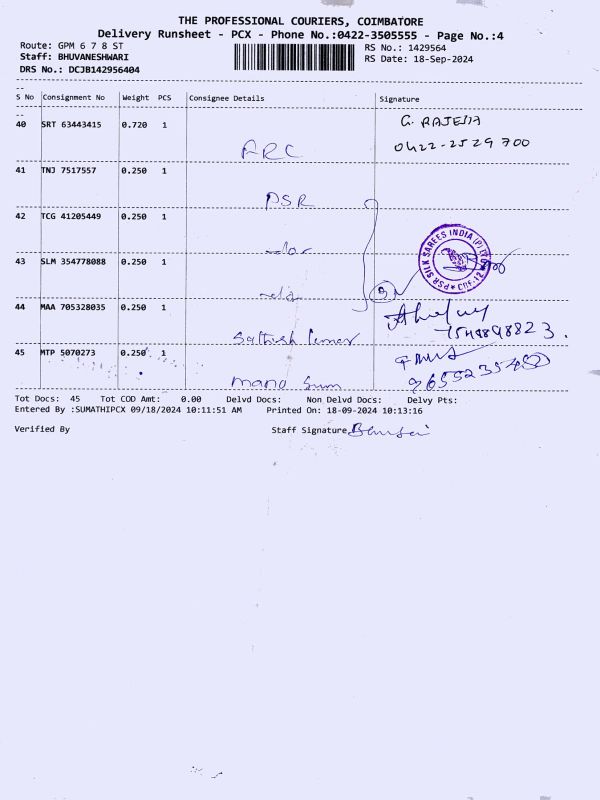 THE PROFESSIONAL COURIERS, COIMBATORE
Delivery Runsheet - PCX - Phone No.:0422-3505555 - Page No.:4
Route: GPM 6 7 8 ST RS No.: 1429564
Staff: BHUVANESHWARI RS Date: 18-Sep-2024
DRS No.: DCJB142956404
S No Consignment No Weight PCS Consignee Details Signature
40 SRT 63443415 0.720 1 ARC G. RAJESH
0422-2529700
41 TNJ 7517557 0.250 1 PSR
42 TCG 41205449 0.250 1
43 SLM 354778088 0.250 1
PSR SILK SAREES INDIA (P) LTD CBE-12
44 MAA 705328035 0.250 1 Sathish kumar
7548898823.
45 MTP 5070273 0.250 1 mano Sum
Tot Docs: 45 Tot COD Amt: 0.00 Delvd Docs: Non Delvd Docs: Delvy Pts:
Entered By :SUMATHIPCX 09/18/2024 10:11:51 AM Printed On: 18-09-2024 10:13:16
Verified By Staff Signature